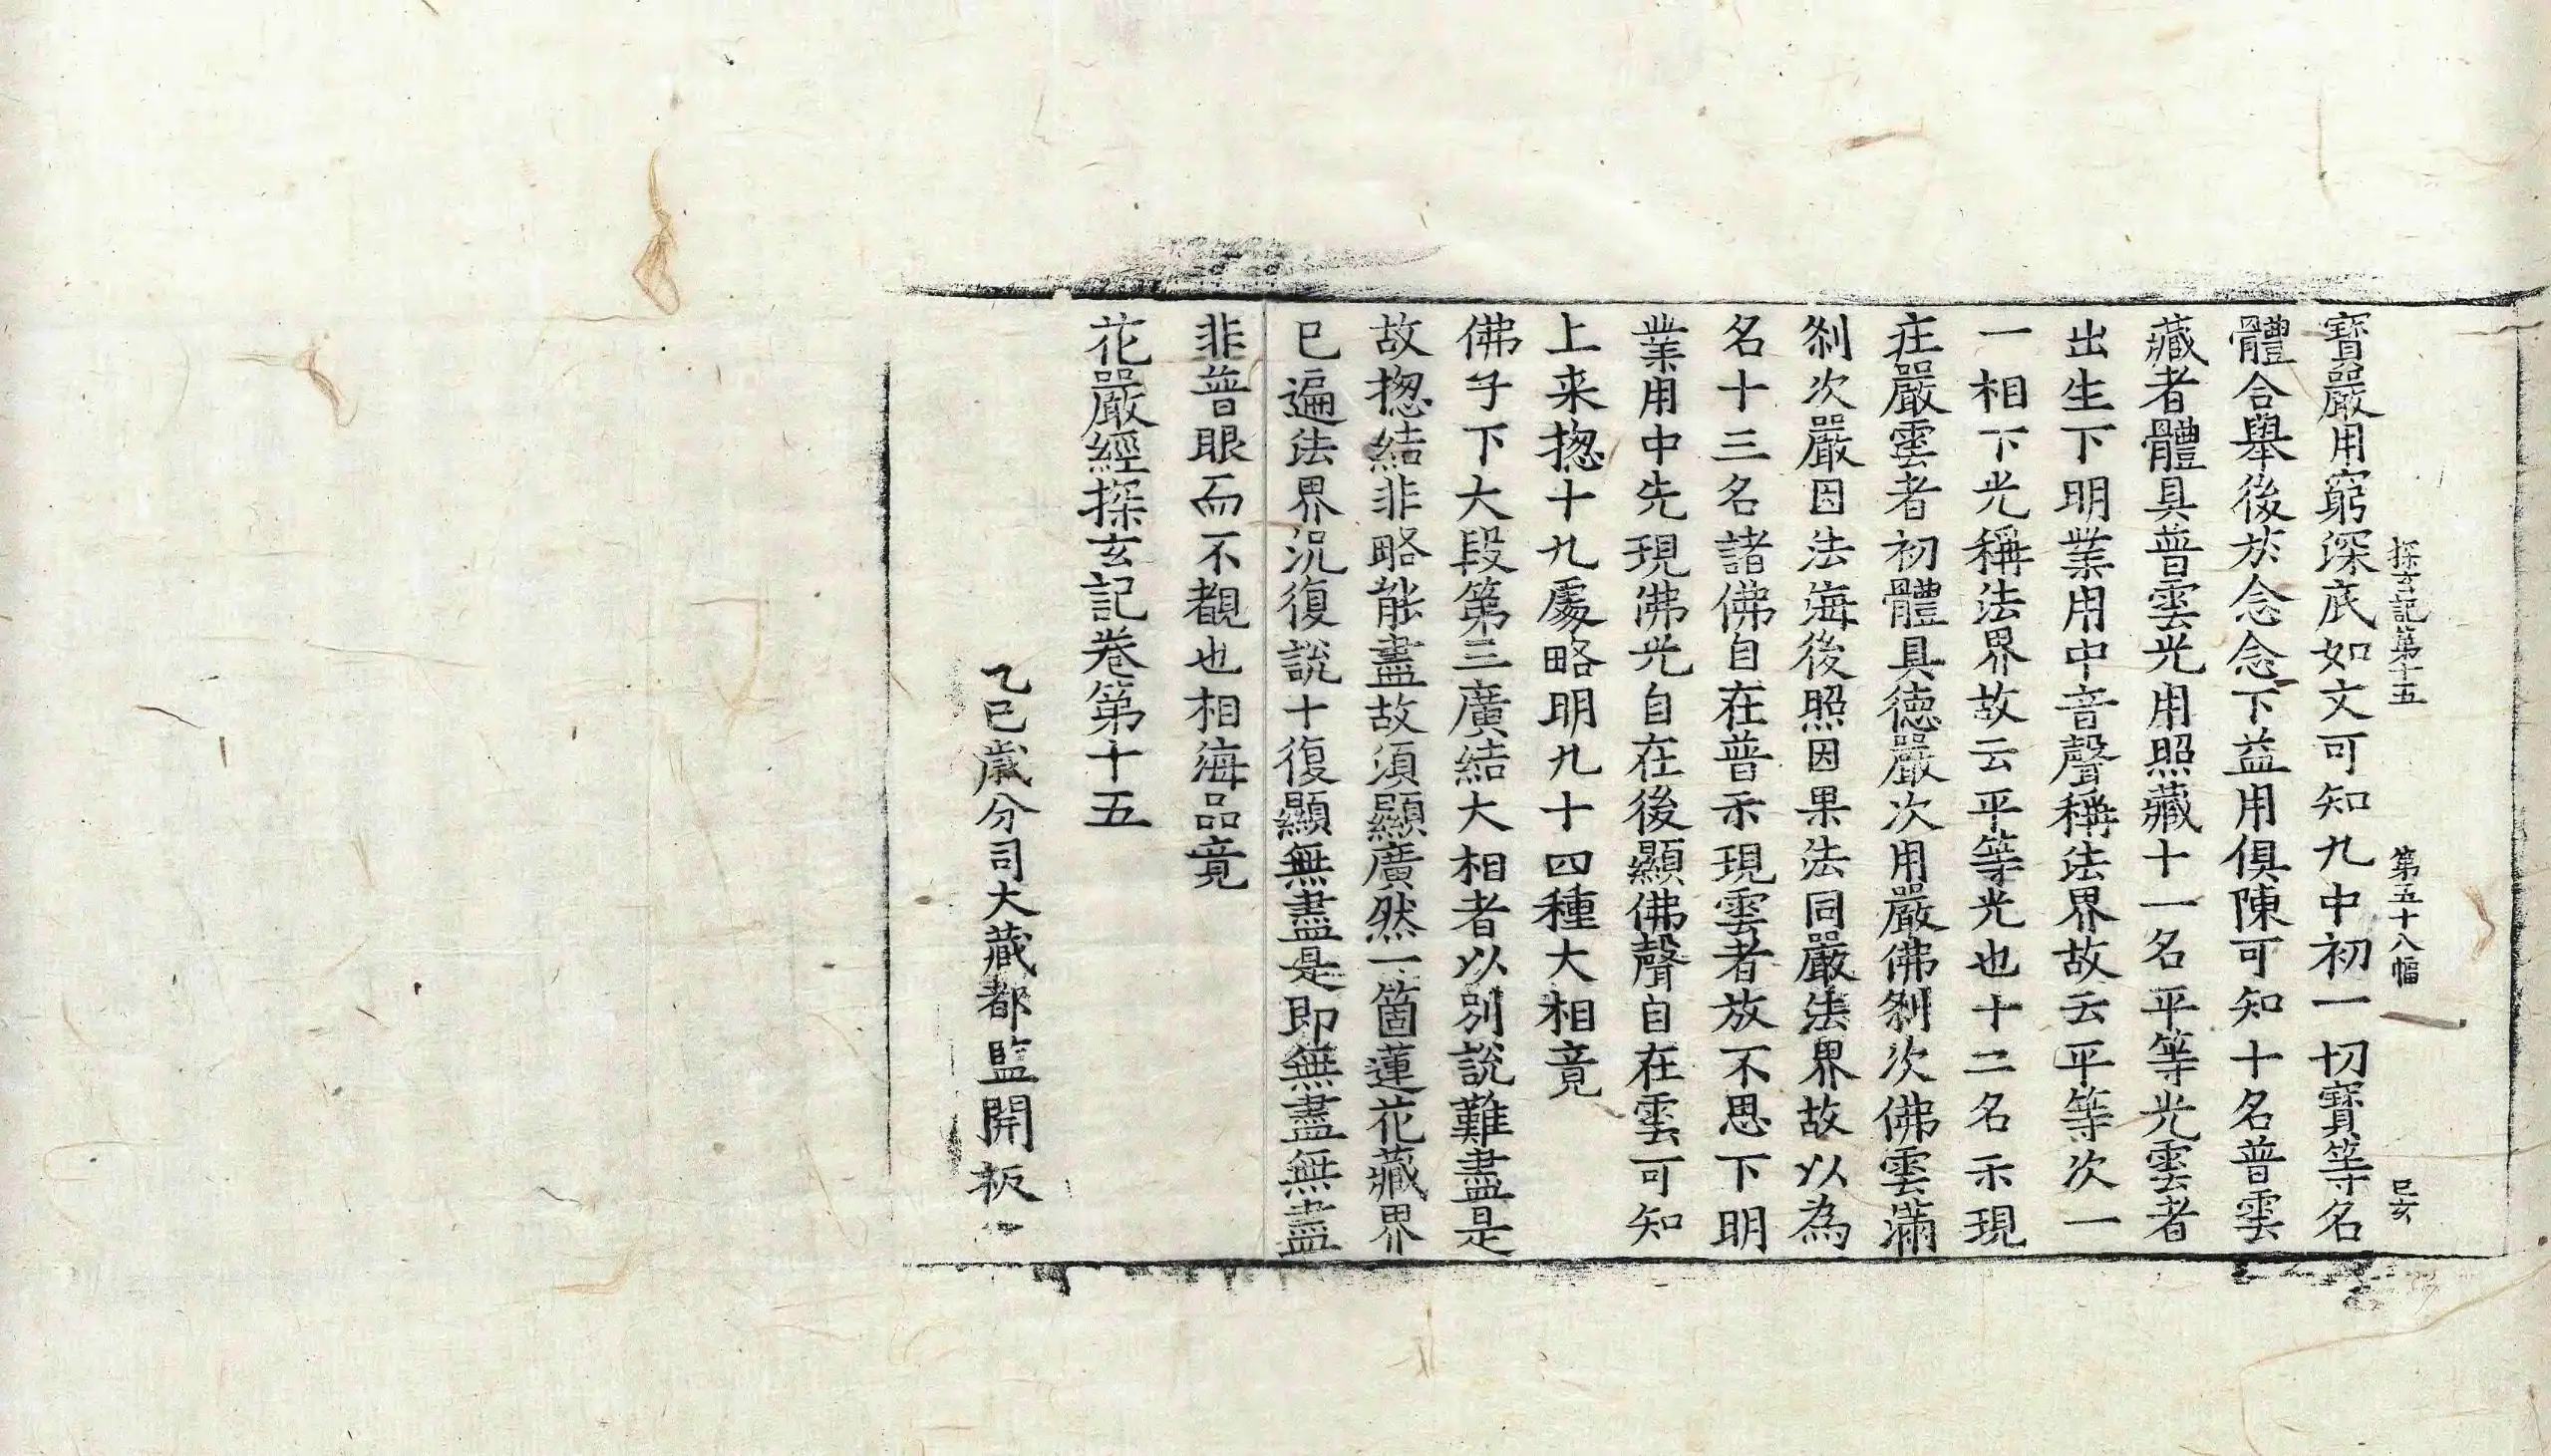 探玄記第十五 第五十八幅 巳亥
寶嚴用窮深底如文可知九中初一切寶等名
體合舉後於念念下益用俱陳可知十名普雲
藏者體具普雲光用照藏十一名平等光雲者
出生下明業用中音聲稱法界故云平等次一
一相下光稱法界故云平等光也十二名示現
庄嚴雲者初體具德嚴次用嚴佛刹次佛雲滿
刹次嚴因法海後照因果法同嚴法界故以為
名十三名諸佛自在普示現雲者放不思下明
業用中先現佛光自在後顯佛聲自在雲可知
上来揔十九處略明九十四種大相竟
佛子下大段第三廣結大相者以別說難盡是
故揔結非略能盡故須顯廣然一箇蓮花藏界
已遍法界況復說十復顯無盡是即無盡無盡
非普眼而不覩也相海品竟
花嚴經探玄記卷第十五
乙巳歲分司大藏都監開板